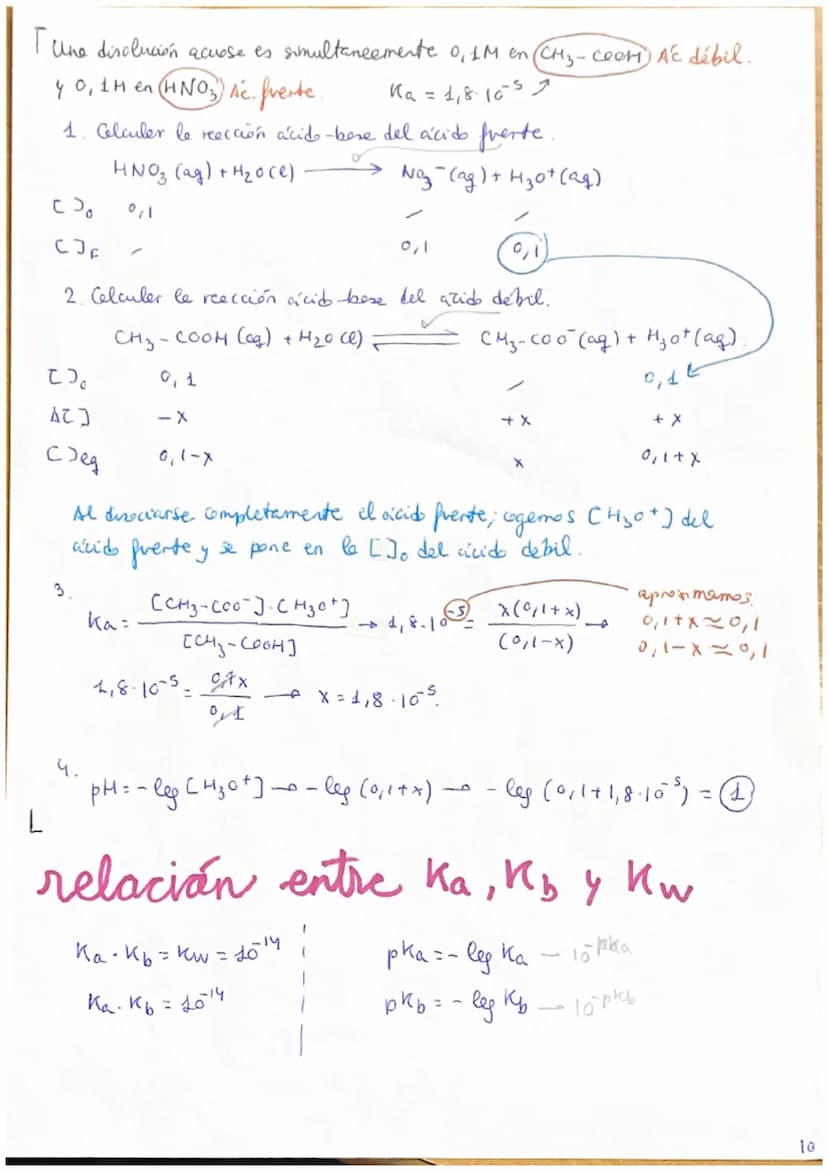 Una disolución acuosa es simultaneamente 0,1M en CH3-COOH AC débil.
y 0,1M en HNO3 Ác. fuerte. Ka = 1,8·10^-5
1. Calcular la reacción ácido-base del ácido fuerte.
HNO3 (aq) + H2O (l) → NO3^- (aq) + H3O^+ (aq)
[ ]0 0,1 - -
[ ]F - 0,1 0,1
2. Calcular la reacción ácido-base del ácido débil.
CH3-COOH (aq) + H2O (l) ⇌ CH3-COO^- (aq) + H3O^+ (aq).
[ ]0 0,1 - 0,1
Δ[ ] -x +x +x
[ ]eq 0,1-x x 0,1+x
Al disociarse completamente el ácido fuerte, cogemos [H3O^+] del
ácido fuerte y se pone en la [ ]0 del ácido debil.
3. Ka = [CH3-COO^-]·[H3O^+] / [CH3-COOH] → 1,8·10^-5 = x(0,1+x) / (0,1-x) → aproximamos.
0,1+x ≈ 0,1
0,1-x ≈ 0,1
1,8·10^-5 = 0,1x / 0,1 → x = 1,8·10^-5.
4. pH = -log [H3O^+] → -log (0,1+x) → -log (0,1+1,8·10^-5) = 1
relación entre Ka, Kb y Kw
Ka·Kb = Kw = 10^-14
Ka·Kb = 10^-14
pKa = -log Ka - 10^-pKa
pKb = -log Kb - 10^-pKb
10